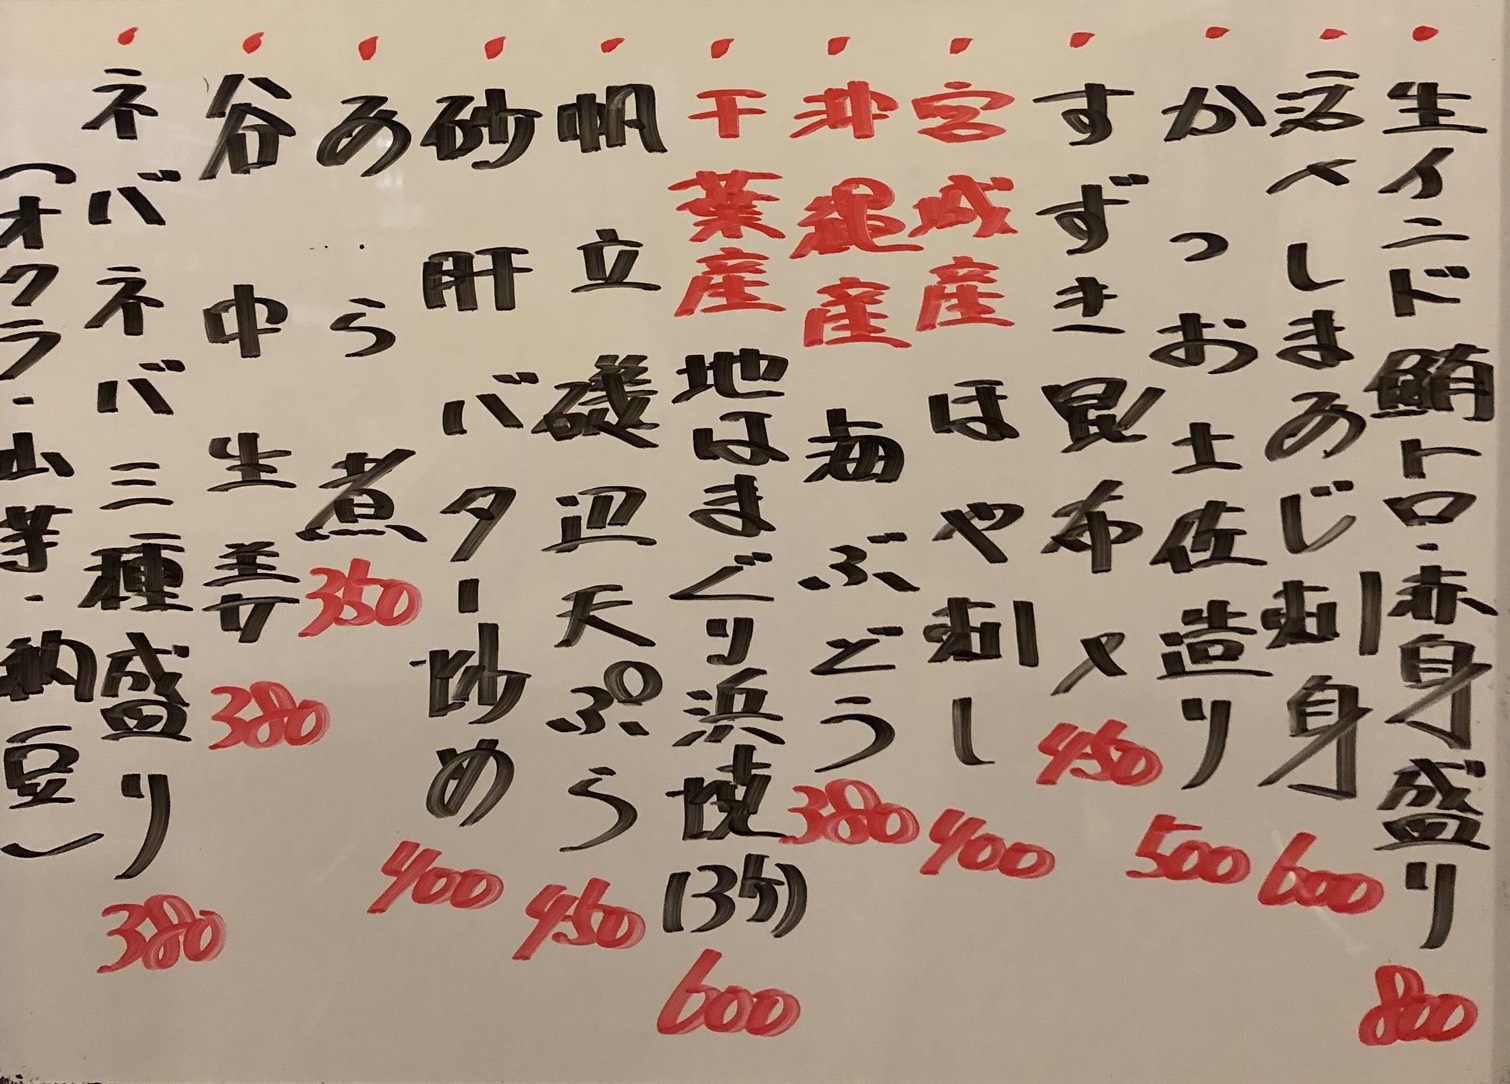 生インド鮪トロ・赤身盛り 800
活〆しまあじ刺身 600
かつお土佐造り 500
すずき昆布〆 450
宮城産 ほや刺し 400
沖縄産 海ぶどう 380
千葉産 地はまぐり浜焼(3ケ) 600
帆立磯辺天ぷら 450
砂肝バター炒め 400
あら煮 350
谷中生姜 380
ネバネバ三種盛り 380
(オクラ・山芋・納豆)